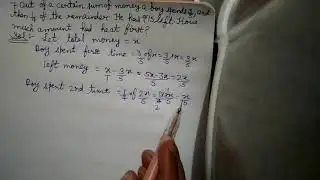 7. Out of a certain sum of money a boy spends 3/5 and
then 1/4 of the remainder. He has ₹15 left. How
much amount had he at first?
Sol:- Let total money = x
Boy spent first time = 3/5 of x = 3/5 × x = 3x/5
left money = x/1 - 3x/5 = 5x-3x/5 = 2x/5
Boy spent 2nd time = 1/4 of 2x/5